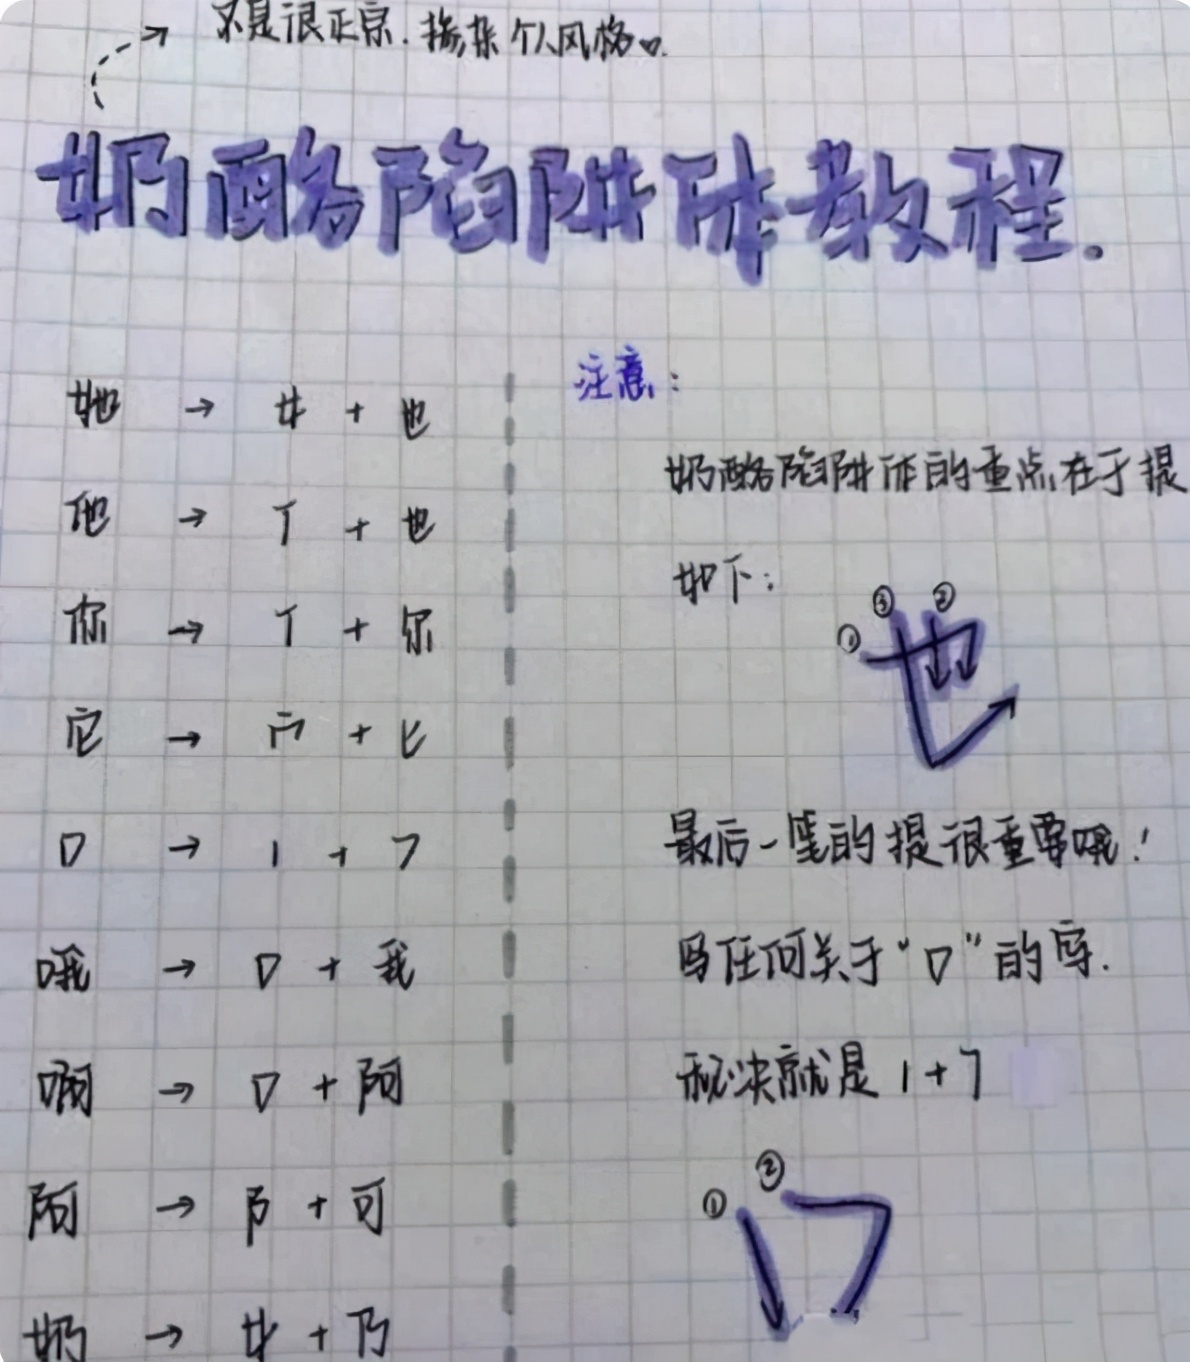 不是很正宗.掺杂个人风格
奶酪陷阱体教程.
她 → 女 + 也
他 → 亻 + 也
你 → 亻 + 尔
它 → 宀 + 匕
口 → 1 + 7
哦 → 口 + 我
啊 → 口 + 阿
阿 → 阝 + 可
奶 → 女 + 乃
注意:
奶酪陷阱体的重点在于提
如下:
① ③ ②
也
最后一笔的提很重要哦!
写任何关于“口”的字.
秘决就是 1+7
① ②
口